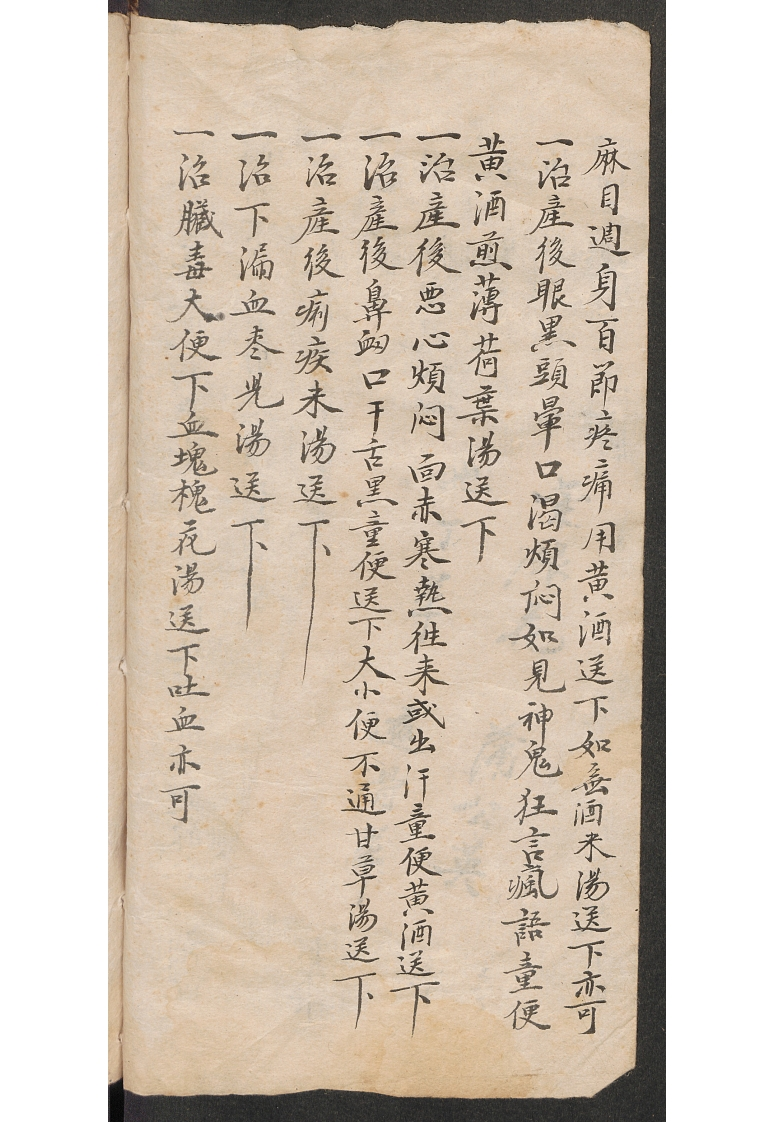 麻目週身百節疼痛用黄酒送下如無酒米湯送下亦可
一治產後眼黒頭暈口渴煩悶如見神鬼狂言瘋語童便
黄酒煎薄荷葉湯送下
一治產後悪心煩悶面赤寒熱徃来或出汗童便黄酒送下
一治產後鼻衂口干舌黒童便送下大小便不通甘草湯送下
一治產後痢疾未湯送下
一治下漏血枣児湯送下
一治臟毒大便下血塊槐花湯送下吐血亦可